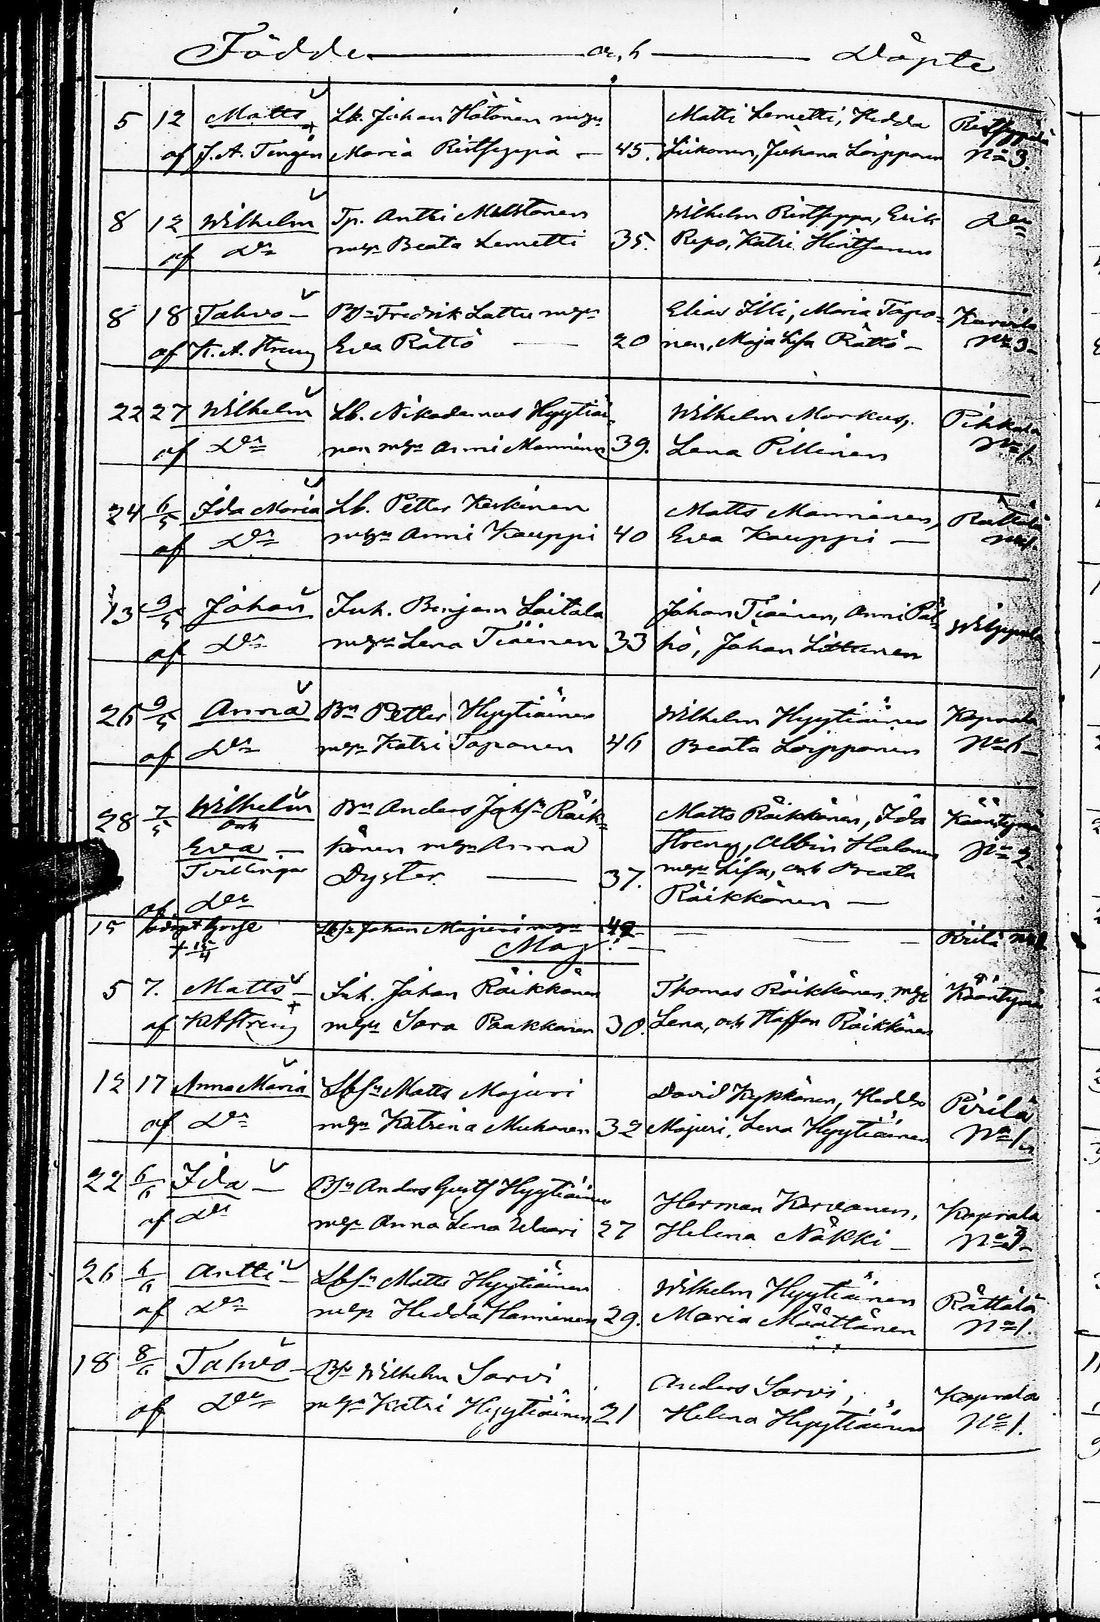 Födde och Döpte
5 12 Matts Lb. Johan Hötönen mgn Matti Lemetti, Hedda
af J. A. Tengén Maria Ristseppä — 45. Liikonen, Juhana Loipponen No 3.
8 12 Wilhelm Tp. Antti Wilhelm Ristseppä, Erik Do
af Do mgn Beata Lemetti 35. Repo, Katri
8 18 Tahvo — Fredrik Lattu mgn Elias Illi, Maria Tapo-
af K. A. Streng Eva Rättö — 20 nen, Maja Lisa Rättö — No 3
22 27 Wilhelm Lb. Nikodemus Hyytiäi- Wilhelm Markus, Pihkala
af Do nen mgn Anni Manninen 39. Lena Pillinen No 1.
24 6/5 Ida Maria Lb. Petter Keskinen Matts Manninen, Rättälä
af Do mgn Anni Kauppi 40 Eva Kauppi —
13 9/5 Johan Inh. Benjam Laitala Johan Tiainen, Anni Päl-
af Do mgn Lena Tiäinen 33 hö, Johan
26 9/5 Anna Bn Petter Hyytiäinen Wilhelm Hyytiäinen Koprala
af Do mgn Katri Taponen 46 Beata Loipponen No 6
28 7/5 Wilhelm Bn Anders Johsn Räik- Matts Räikkönen, Ida Kääntymä
och Eva — könen mgn Anna Streng, Albin No 2
Tvillingar Dyster — 37. mgn Lisa, och Beata
af Do Räikkönen —
15 Johan Majuri mgn 42 — — —
Maj
5 7. Matts — Inh. Johan Räikkönen Thomas Räikkönen mgn Kääntymä
af K A Streng mgn Sara Paakkanen 30. Lena, och Staffan Räikkönen
12 17 Anna Maria Lbsn Matts Majuri David Kykkänen, Hedda Pirilä
af Do mgn Katrina Mukanen 32 Majuri, Lena Hyytiäinen No 1.
22 6/6 Ida — Bsn Anders Gustf Hyytiäinen Herman Karvanen, Koprala
af Do mgn Anna Lena 27 Helena Näkki —
26 6/6 Antti — Lbsn Matts Hyytiäinen Wilhelm Hyytiäinen Rättälä
af Do mgn Hedda Hanninen 29. Maria Määttänen No 1.
18 8/6 Tahvo — Bsn Wilhelm Sarvi Anders Sarvi, Koprala
af Do mgn Katri Hyytiäinen 21 Helena Hyytiäinen No 1.